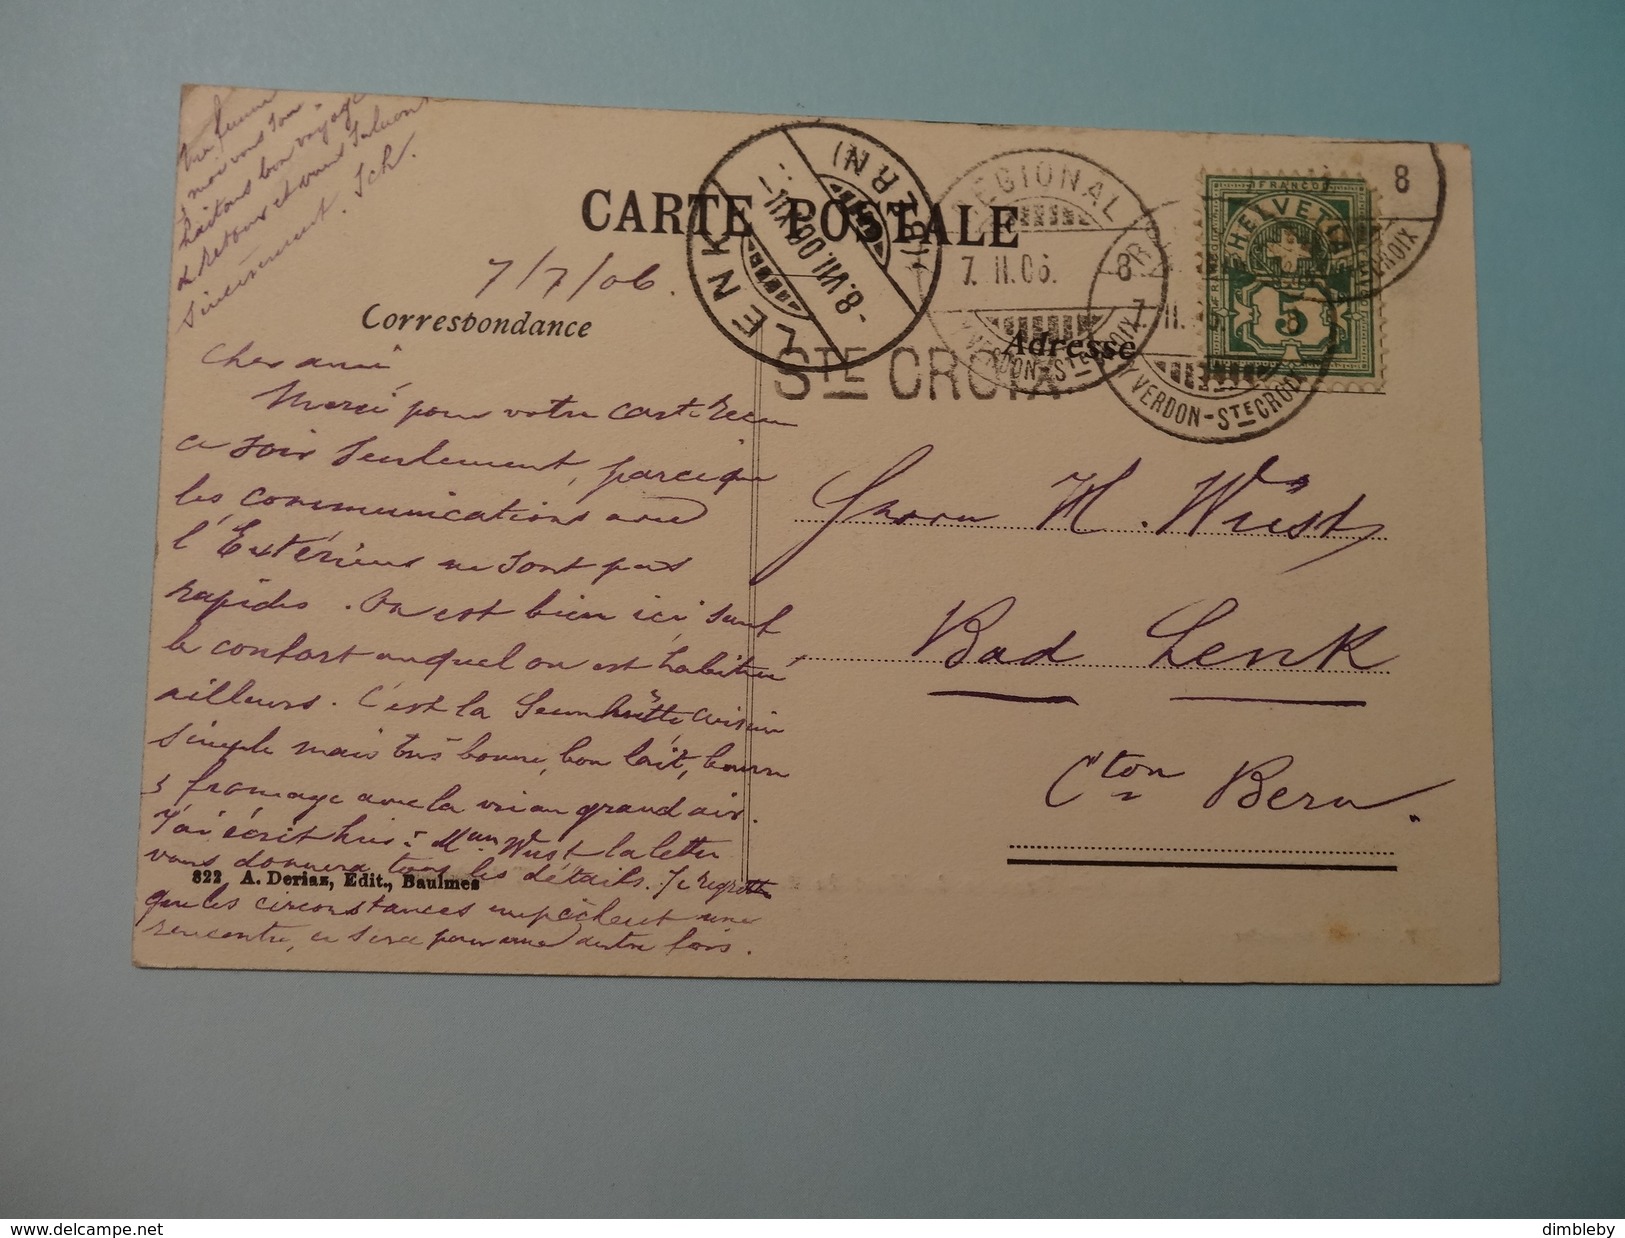 Ma femme
& moi vous sou-
haitons bon voyage
de retour et vous saluons
sincèrement. Sch.
CARTE POSTALE
7/7/06.
Correspondance
Cher ami
Merci pour votre carte recue
ce soir seulement, parceque
les communications avec
l'Extérieur ne sont pas
rapides. On est bien ici, sauf
le confort auquel on est habitué
ailleurs. C'est la Sennhütte, cuisine
simple mais très bonne, bon lait, beurre
& fromage avec la vie au grand air.
J'ai écrit hier à Mme Wüst la lettre
vous donnera tous les détails. Je regrette
que les circonstances empêchent une
rencontre, ce sera pour une autre fois.
822 A. Deriaz, Edit., Baulmes
LENK
(BERN)
-8.VII.06.XI-
REGIONAL
7. II. 06. 8
YVERDON-STE CROIX
STE CROIX
7. II.
YVERDON-STE CROIX
8
CROIX
FRANCO
HELVETIA
5
Adresse
Herrn H. Wüst
Bad Lenk
Cton Bern
delcampe.net
dimbleby